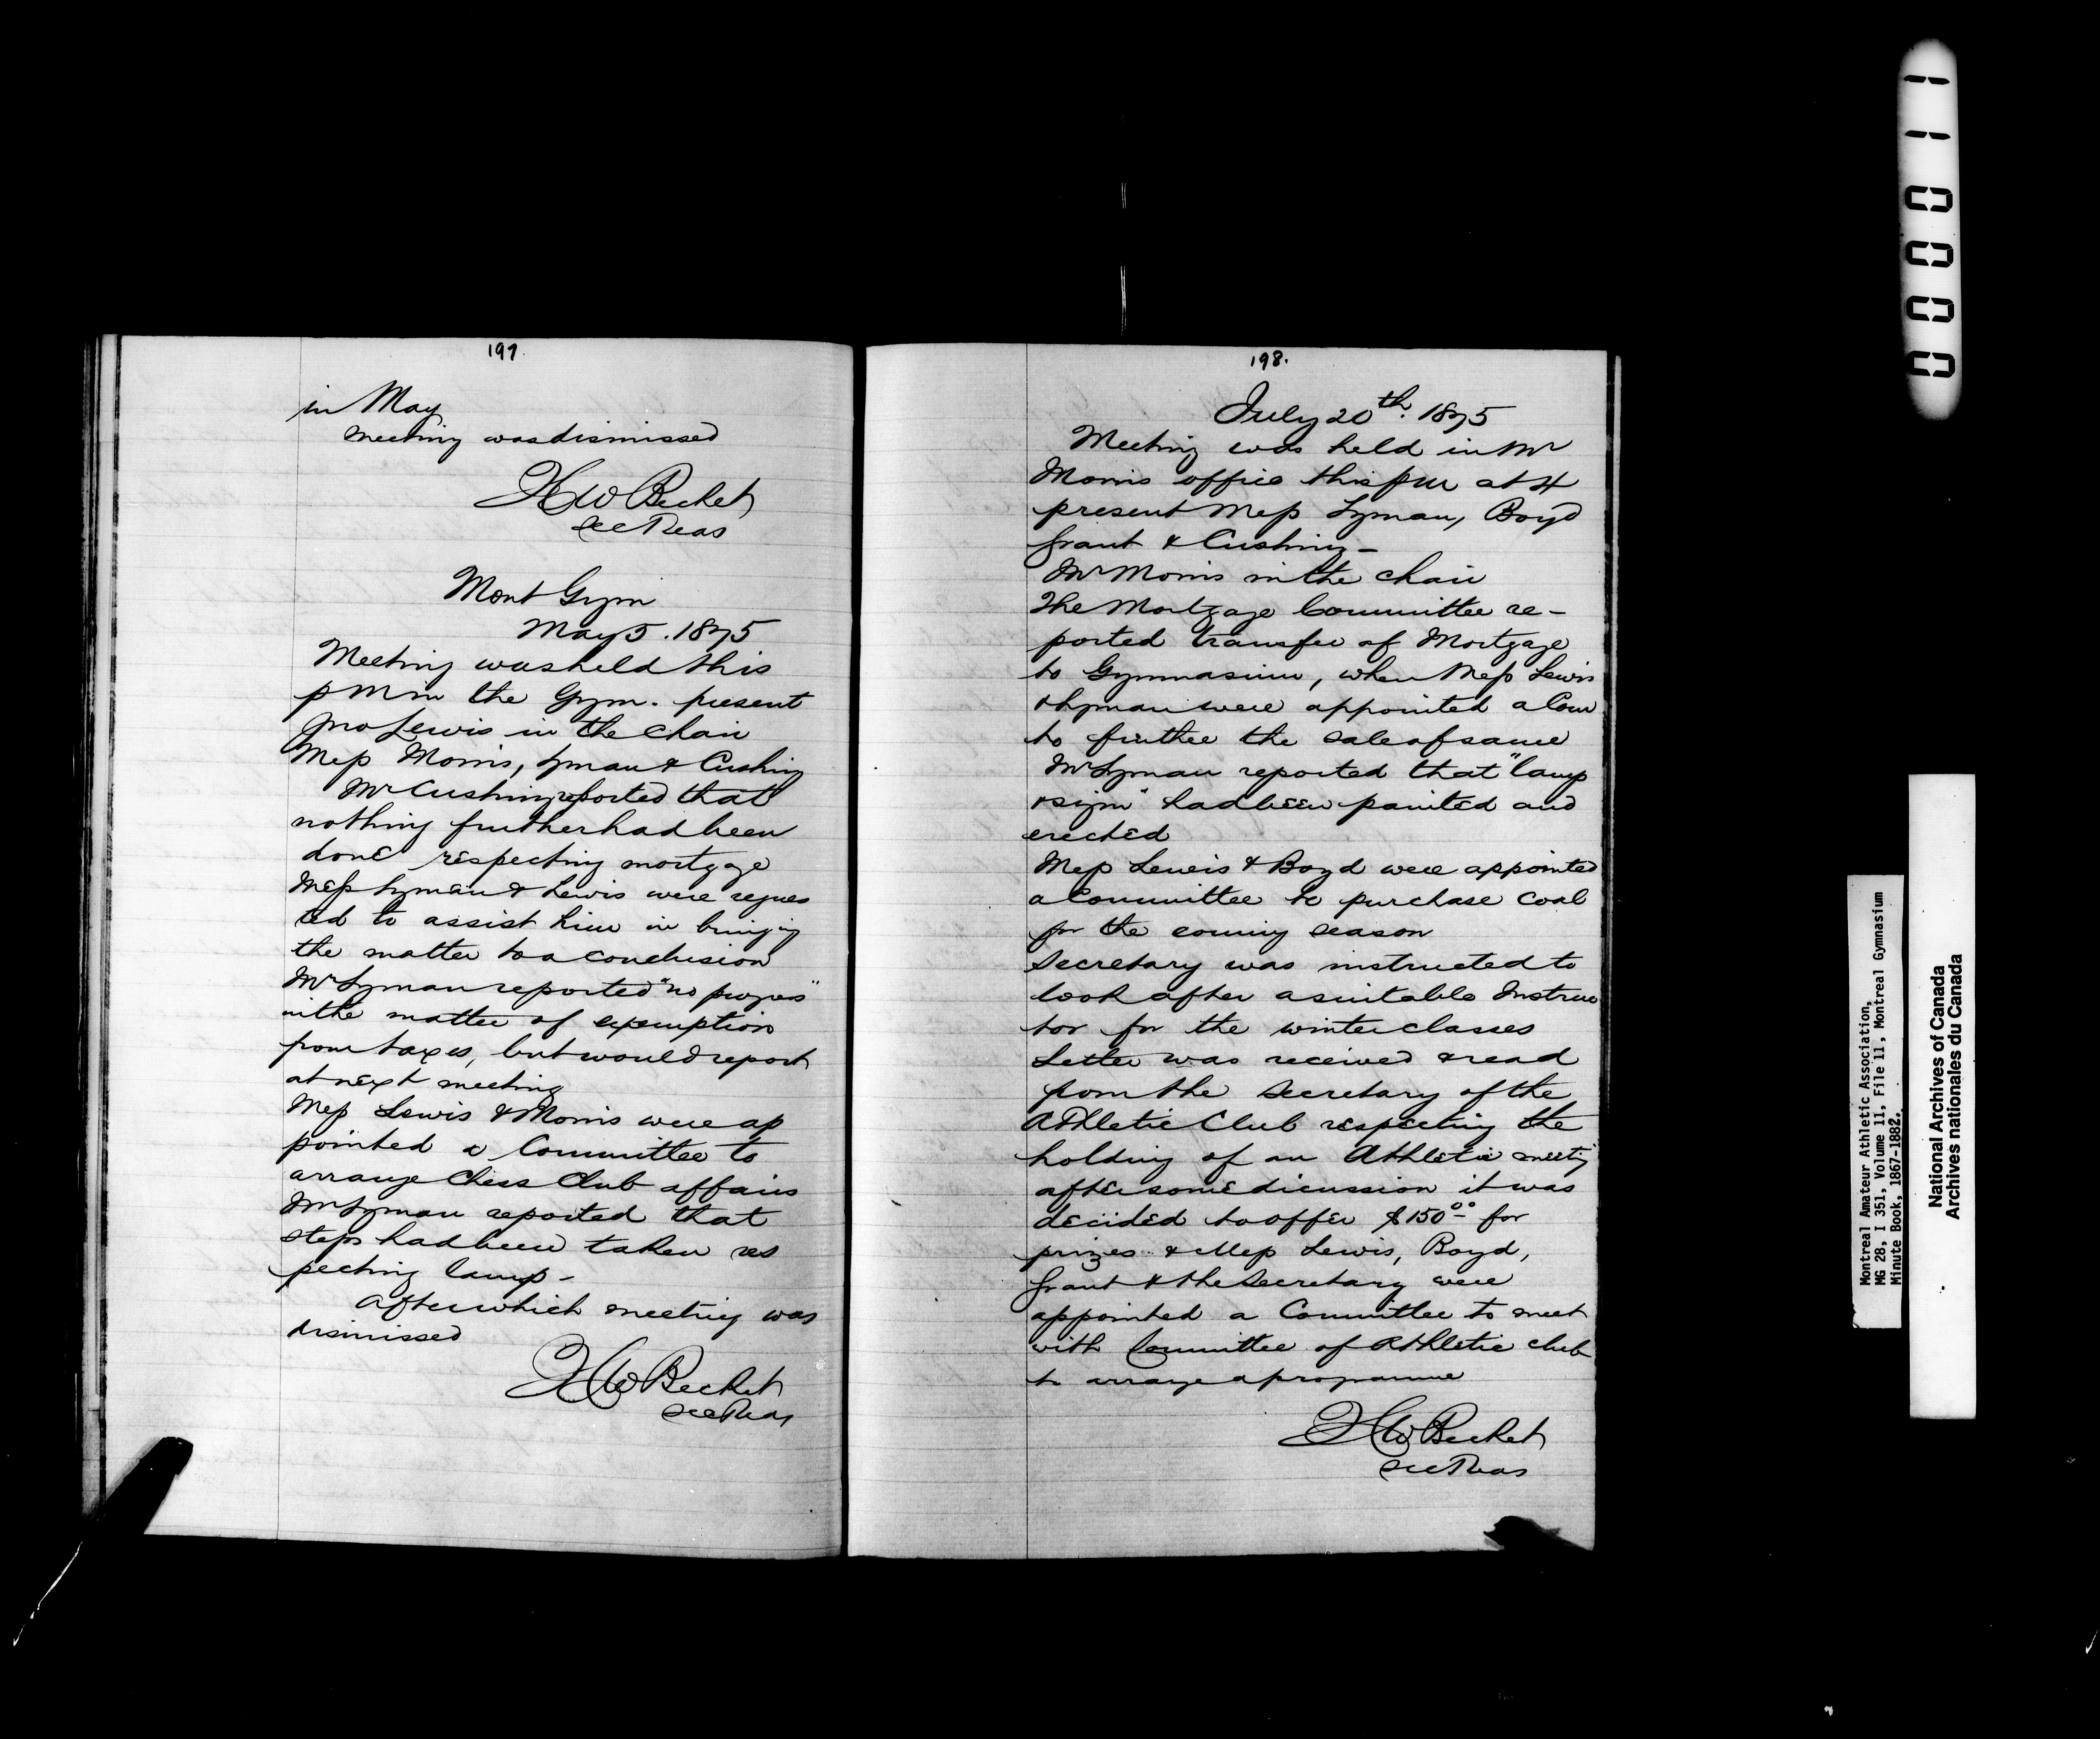 197.
in May
meeting was dismissed
H W Becket
Sec Treas
Mont Gym
May 5. 1875
Meeting was held this
p M in the Gym. present
Jno Lewis in the Chair
Mess Morris, Lyman & Cushing
Mr Cushing reported that
nothing further had been
done respecting mortgage
Mess Lyman & Lewis were reques
ted to assist him in bringing
the matter to a conclusion
Mr Lyman reported "no progress"
in the matter of exemption
from taxes, but would report
at next meeting
Mess Lewis & Morris were ap
pointed a Committee to
arrange Chess Club affairs
Mr Lyman reported that
steps had been taken res
pecting lamp -
After which meeting was
dismissed
H W Becket
Sec Treas
198.
July 20th. 1875
Meeting was held in Mr
Morris office this pm at 4
present Mess Lyman, Boyd
Grant & Cushing -
Mr Morris in the chair
The Mortgage Committee re-
ported transfer of Mortgage
to Gymnasium, when Mess Lewis
& Lyman were appointed a Com
to further the sale of same
Mr Lyman reported that "lamp
& sign" had been painted and
erected
Mess Lewis & Boyd were appointed
a Committee to purchase coal
for the coming season
Secretary was instructed to
look after a suitable Instruc
tor for the winter classes
Letter was received & read
from the Secretary of the
Athletic Club respecting the
holding of an Athletic meeting
after some dicussion it was
decided to offer $150.00 for
prizes & Mess Lewis, Boyd,
Grant & the Secretary were
appointed a Committee to meet
with Committee of Athletic club
to arrange a programme
H W Becket
Sec Treas
000011
Montreal Amateur Athletic Association,
MG 28, I 351, Volume 11, File 11, Montreal Gymnasium
Minute Book, 1867-1882.
National Archives of Canada
Archives nationales du Canada